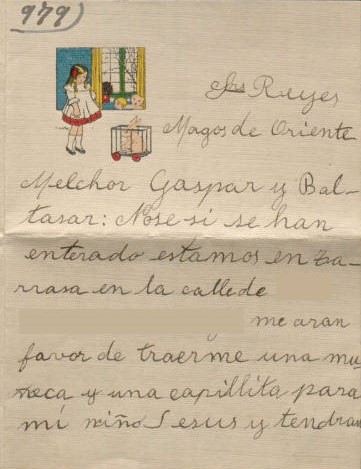 979)
Srs Reyes
Magos de Oriente
Melchor Gaspar y Bal-
tasar: Nose si se han
enterado estamos en ta-
rrasa en la calle de
me aran
favor de traerme una mu
neca y una capillita para
mi niño Jesus y tendran